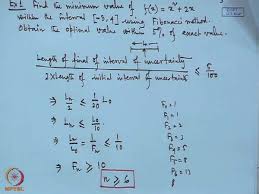 Ex1. Find the minimum value of f(x) = x² + 2x
within the interval [-3, 4] using Fibonacci method.
Obtain the optimal value within 5% of exact value.
Length of final of interval of uncertainty / 2 x Length of initial interval of uncertainty ≤ 5/100
⇒ Ln/2 ≤ 1/20 L0
⇒ Ln ≤ L0/10
⇒ Ln/L0 = 1/Fn ≤ 1/10
⇒ Fn ≥ 10
n ≥ 6
F0 = 1
F1 = 1
F2 = 2
F3 = 3
F4 = 5
F5 = 8
F6 = 13